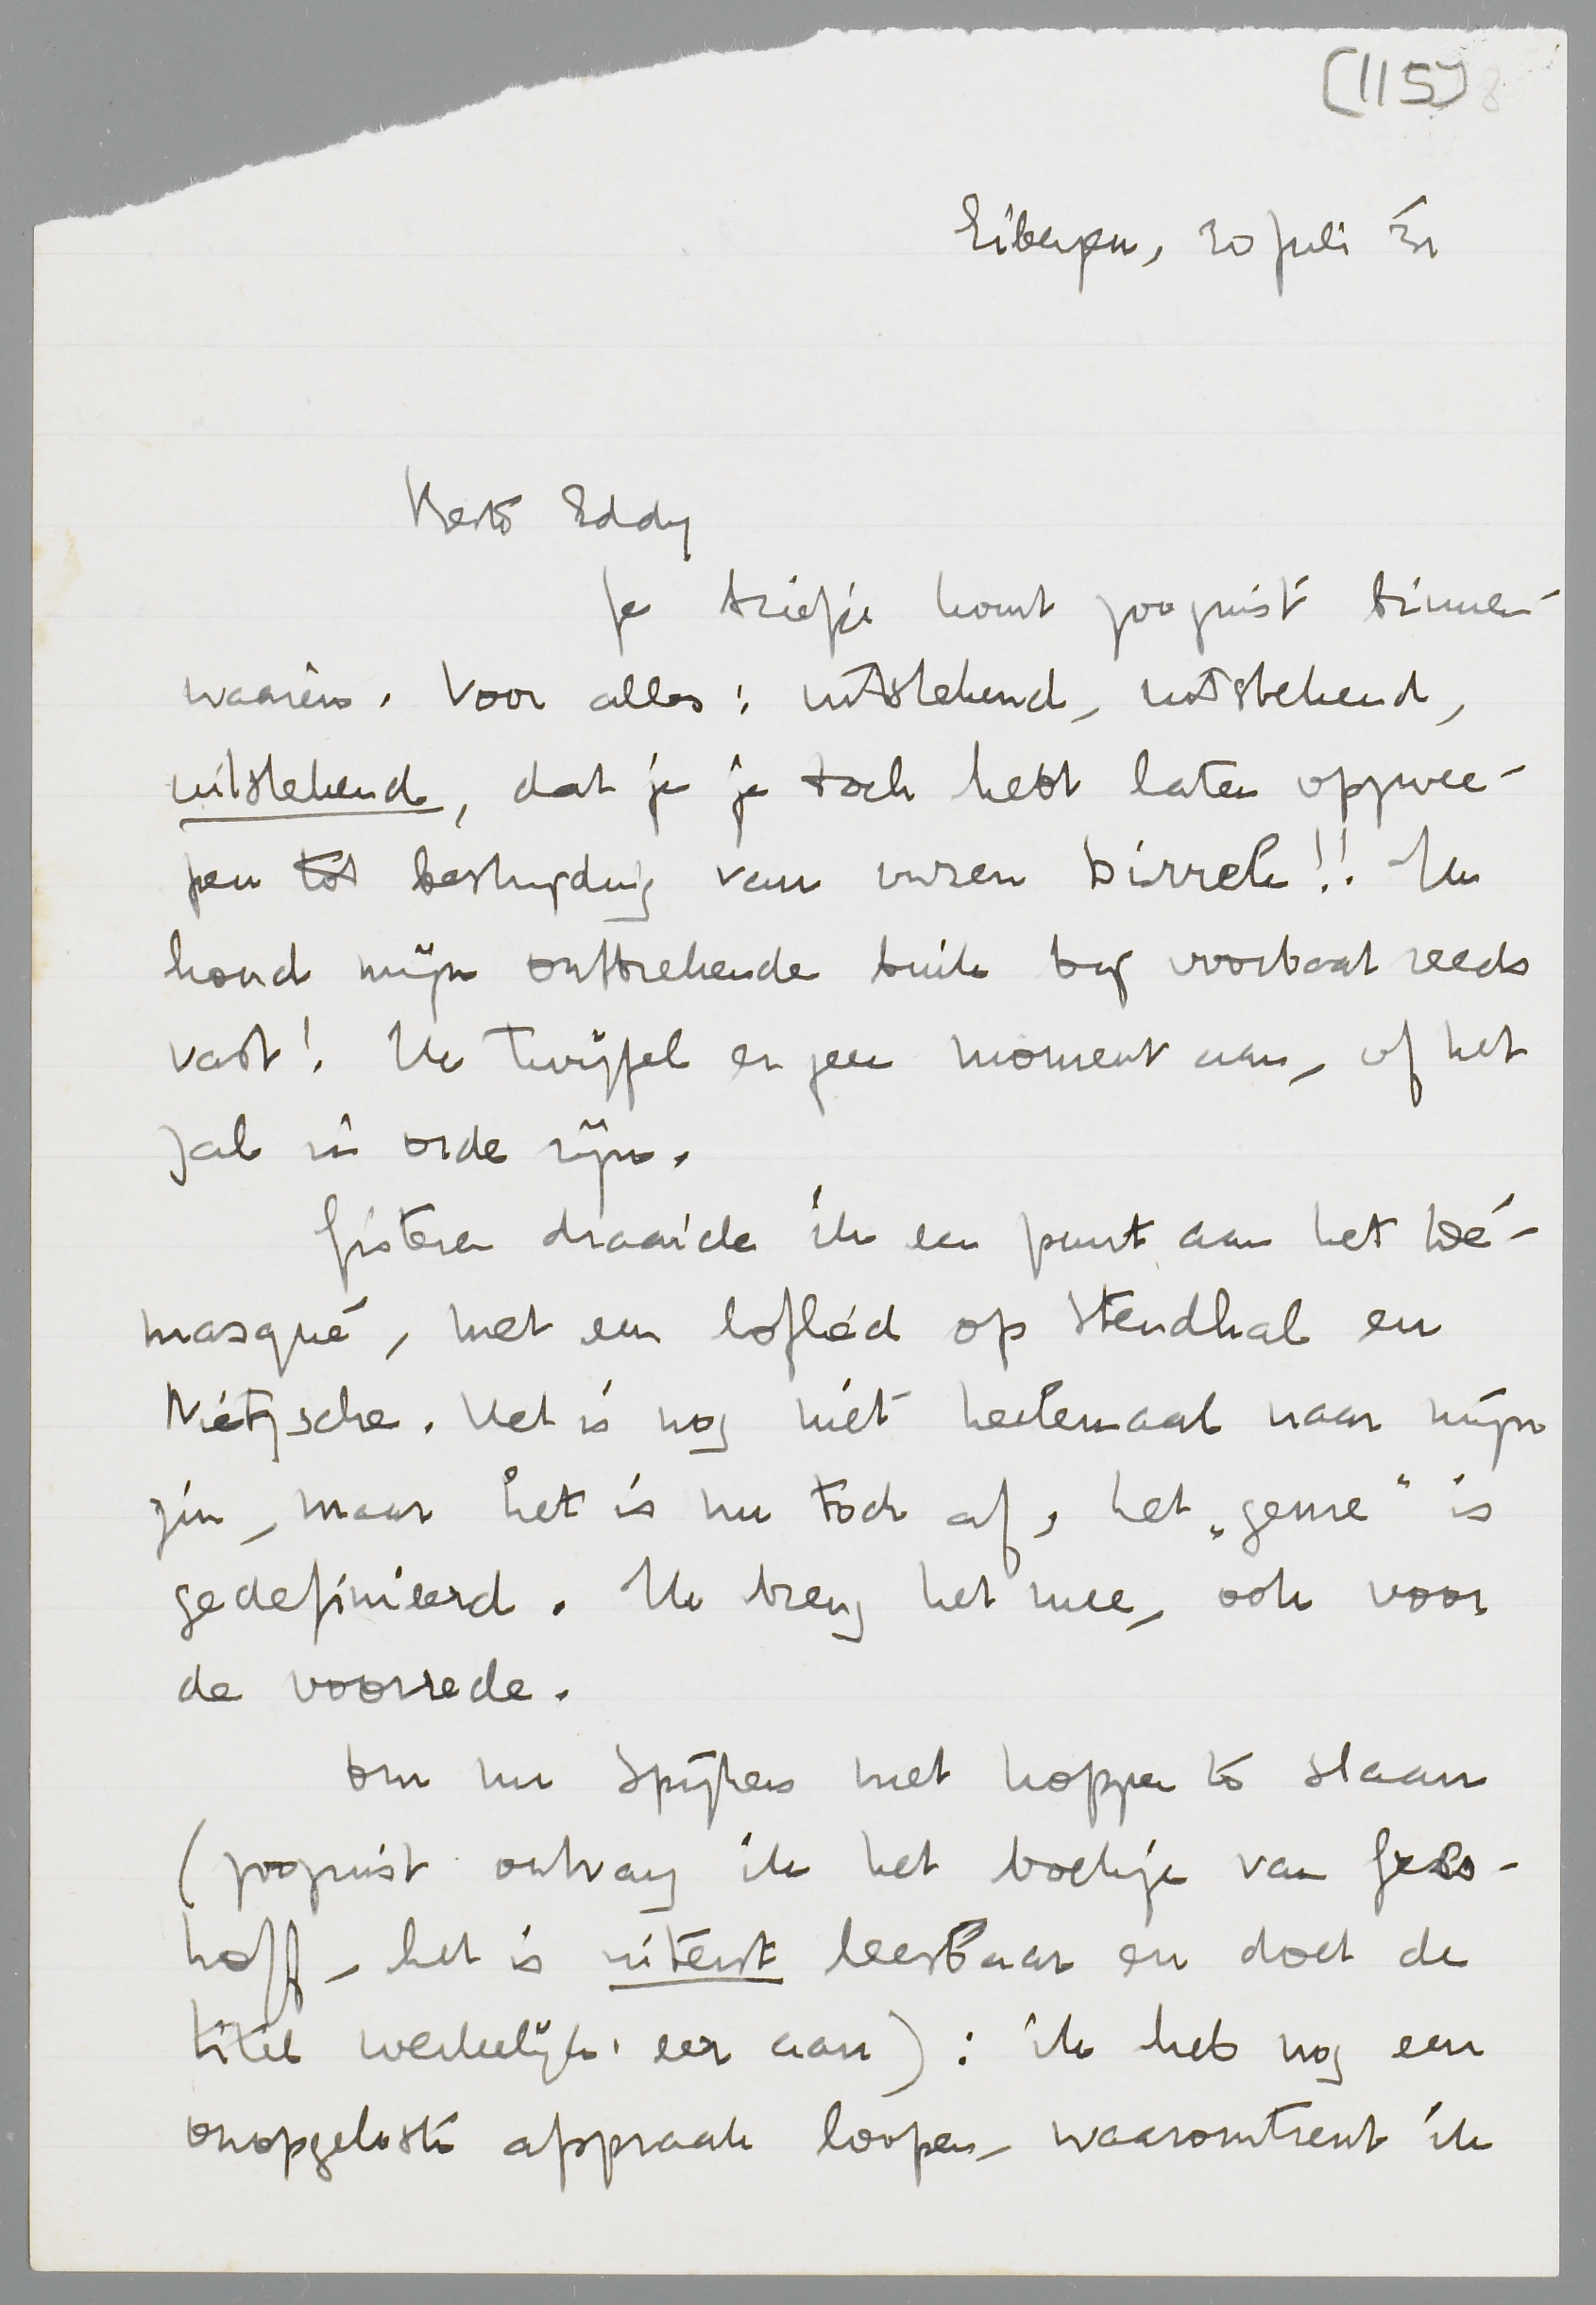 (115)
Eibergen, 20 Juli '31
Beste Eddy
Je briefje komt zoojuist binnen-
waaien. Voor alles: uitstekend, uitstekend,
uitstekend, dat je je toch hebt laten opzwee-
pen tot bestrijding van onzen Dirrek!! Ik
houd mijn ontbrekende buik bij voorbaat reeds
vast! Ik twijfel er geen moment aan, of het
zal in orde zijn.
Gisteren draaide ik een punt aan het Dé-
masqué, met een loflied op Stendhal en
Nietzsche. Het is nog niet heelemaal naar mijn
zin, maar het is nu toch af, het „genre” is
gedefinieerd. Ik breng het mee, ook voor
de voorrede.
Om nu spijkers met koppen te slaan
(zoojuist ontvang ik het boekje van Gres-
hoff, het is uiterst leesbaar en doet de
titel werkelijk eer aan): ik heb nog een
onopgeloste afspraak loopen, waaromtrent ik